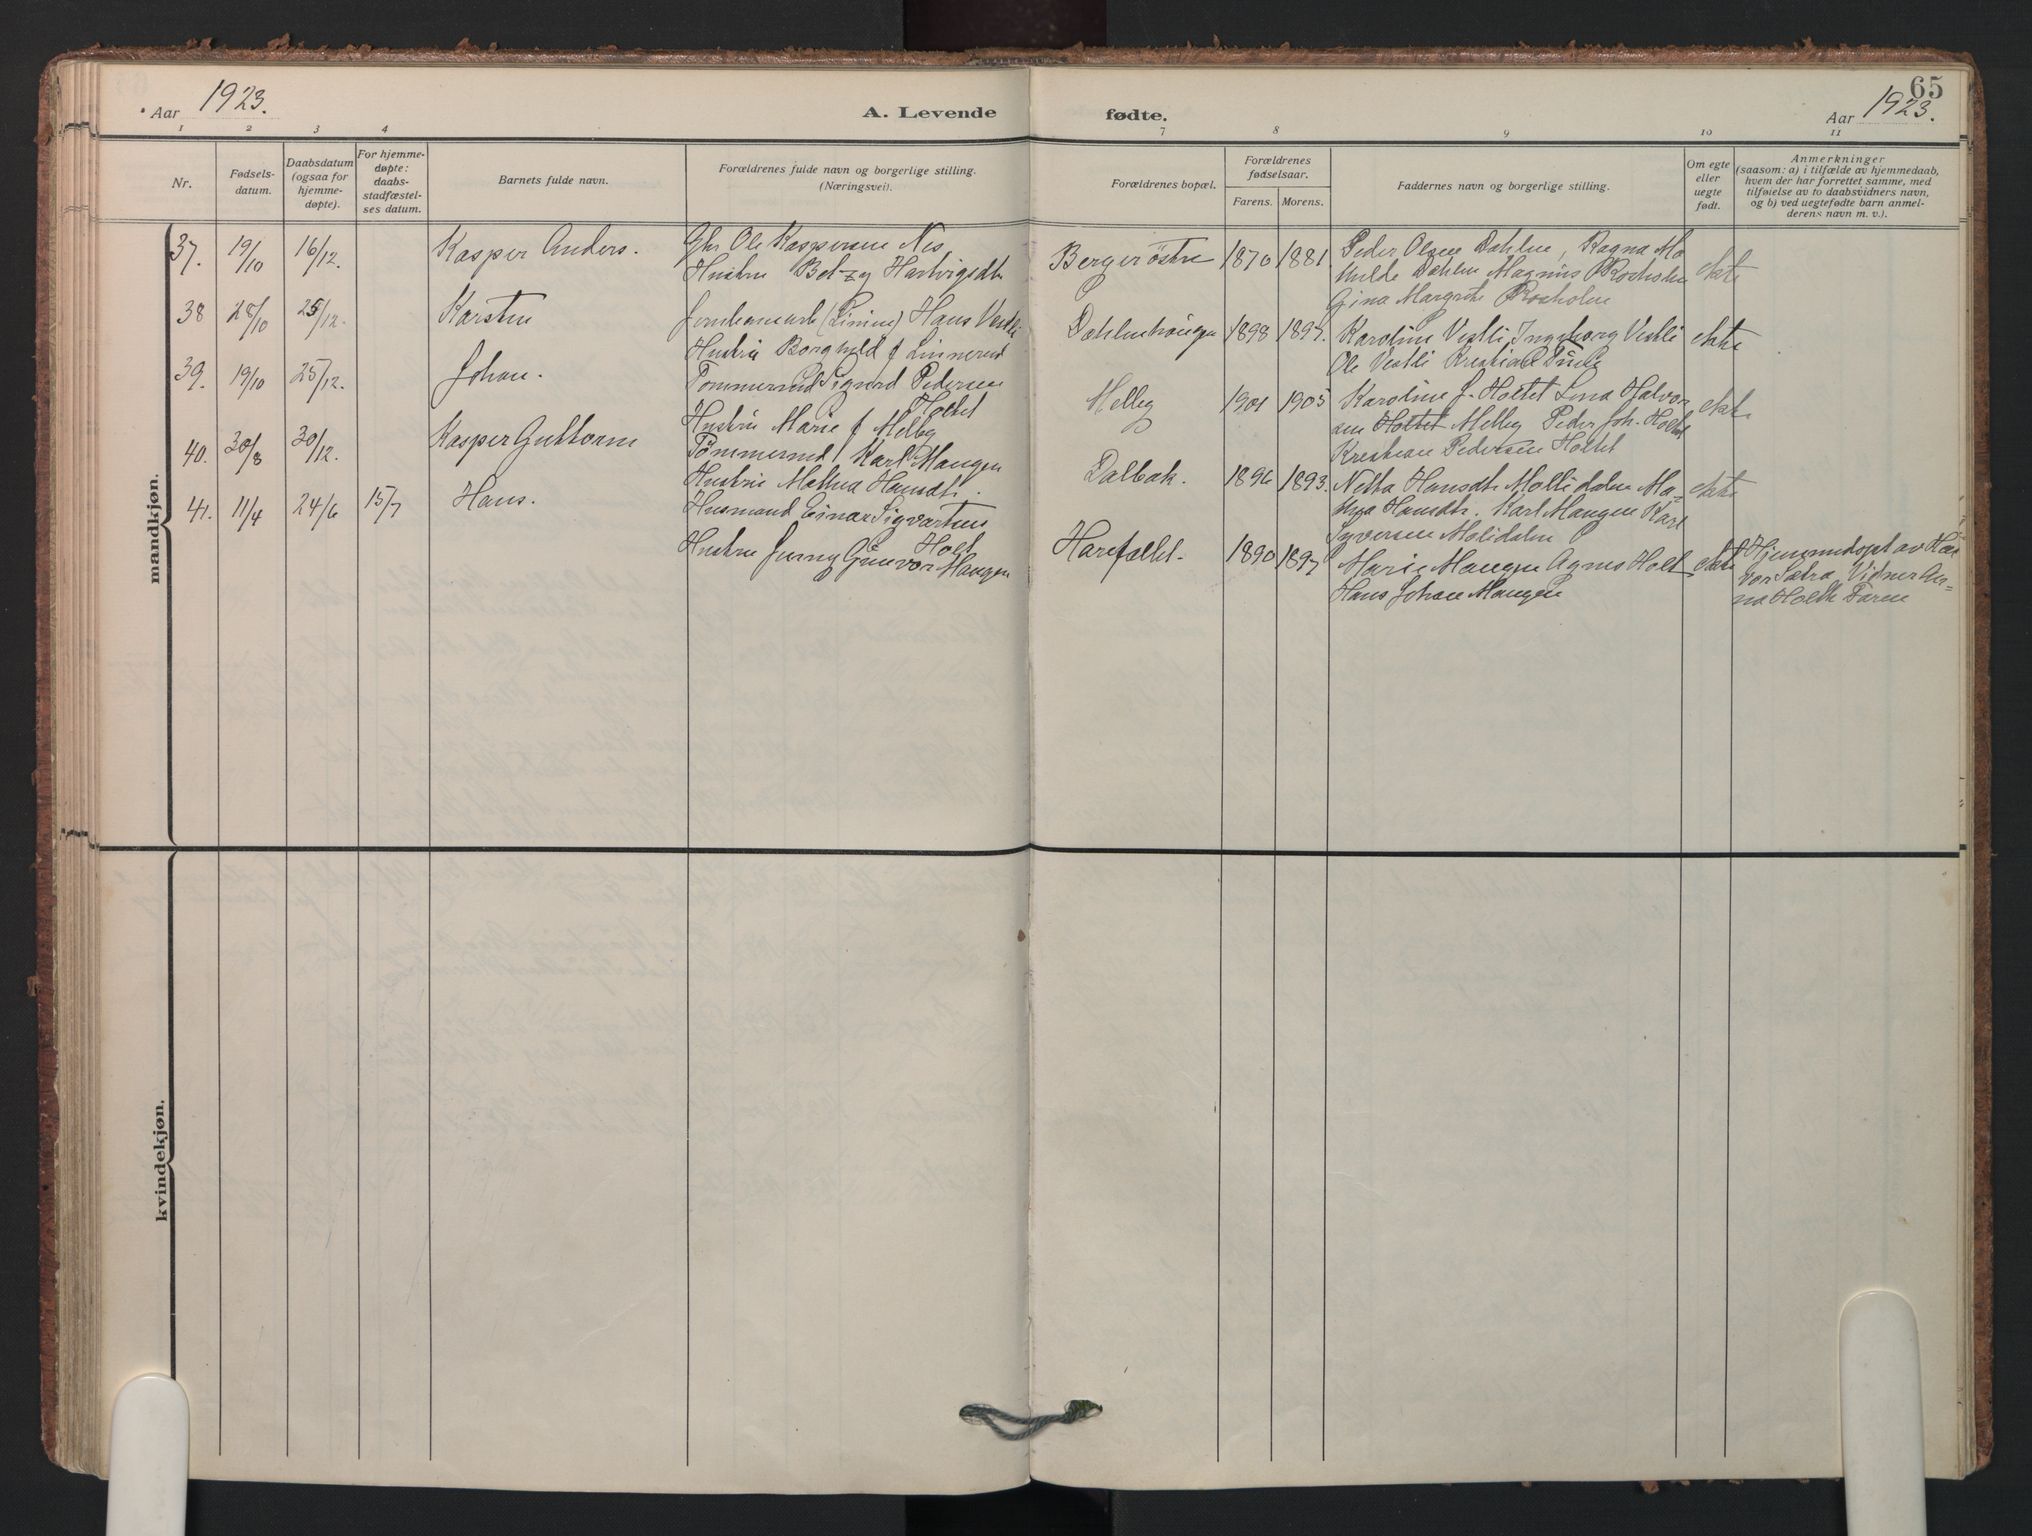 65
Aar 1923.
A. Levende fødte.
Aar 1923.
1 2 3 4 7 8 9 10 11
Nr.
Fødsels-
datum.
Daabsdatum
(ogsaa for
hjemme-
døpte).
For hjemme-
døpte:
daabs-
stadfæstel-
ses datum.
Barnets fulde navn.
Forældrenes fulde navn og borgerlige stilling.
(Næringsvei).
Forældrenes bopæl.
Forældrenes
fødselsaar.
Farens. Morens.
Faddernes navn og borgerlige stilling.
Om egte
eller
uegte
født.
Anmerkninger
(saasom: a) i tilfælde av hjemmedaab,
hvem der har forrettet samme, med
tilføielse av to daabsvidners navn,
og b) ved uegtefødte barn anmel-
derens navn m. v.).
mandkjøn.
37. 19/10 16/12. Kasper Anders.
Gbr Ole Kaspersen Nes,
Hustru Betzy Hartvigsdtr
Berger østre 1870 1881
Peder Olsen Dahlen, Ragna Ma
hilde Dahlen Magnus Roxholm
Gina Margrete Roxholm
ekte
38 28/10 25/12. Karsten
(Linien) Hans Vestli
Hustru Borghild f Linnerud
Dahlenhaugen 1898 1897.
Karoline Vestli Ingeborg Vestli
Ole Vestli Kristian
ekte
39. 19/10 25/12. Johan.
Tømmermd Sigurd Pedersen
Holtet
Hustru Marie f Melby
Melby 1901 1905
Karoline J. Holtet Lina Halvor
sen Holtet Melby Peder Joh. Holtet
Kristian Pedersen Holtet
ekte
40. 30/8 30/12. Kasper Guttorm
Tømmermd Karl Mangen
Hustru Mathea Hansdtr.
Dalbak. 1896 1893.
Netta Hansdtr Mollidalen Ma-
thea Hansdtr. Karl Mangen Karl
Syversen Molidalen
ekte
41. 11/4 24/6 15/7 Hans.
Husmand Einar Sigvartsen
Holt
Hustru Jenny Gunvor Mangen
Harefallet. 1890 1897
Marie Mangen Agnes Holt
Hans Johan Mangen
ekte
Hjemmedøpt av Hal
vor Sætra Vidner An-
na Holth Faren
kvindekjøn.